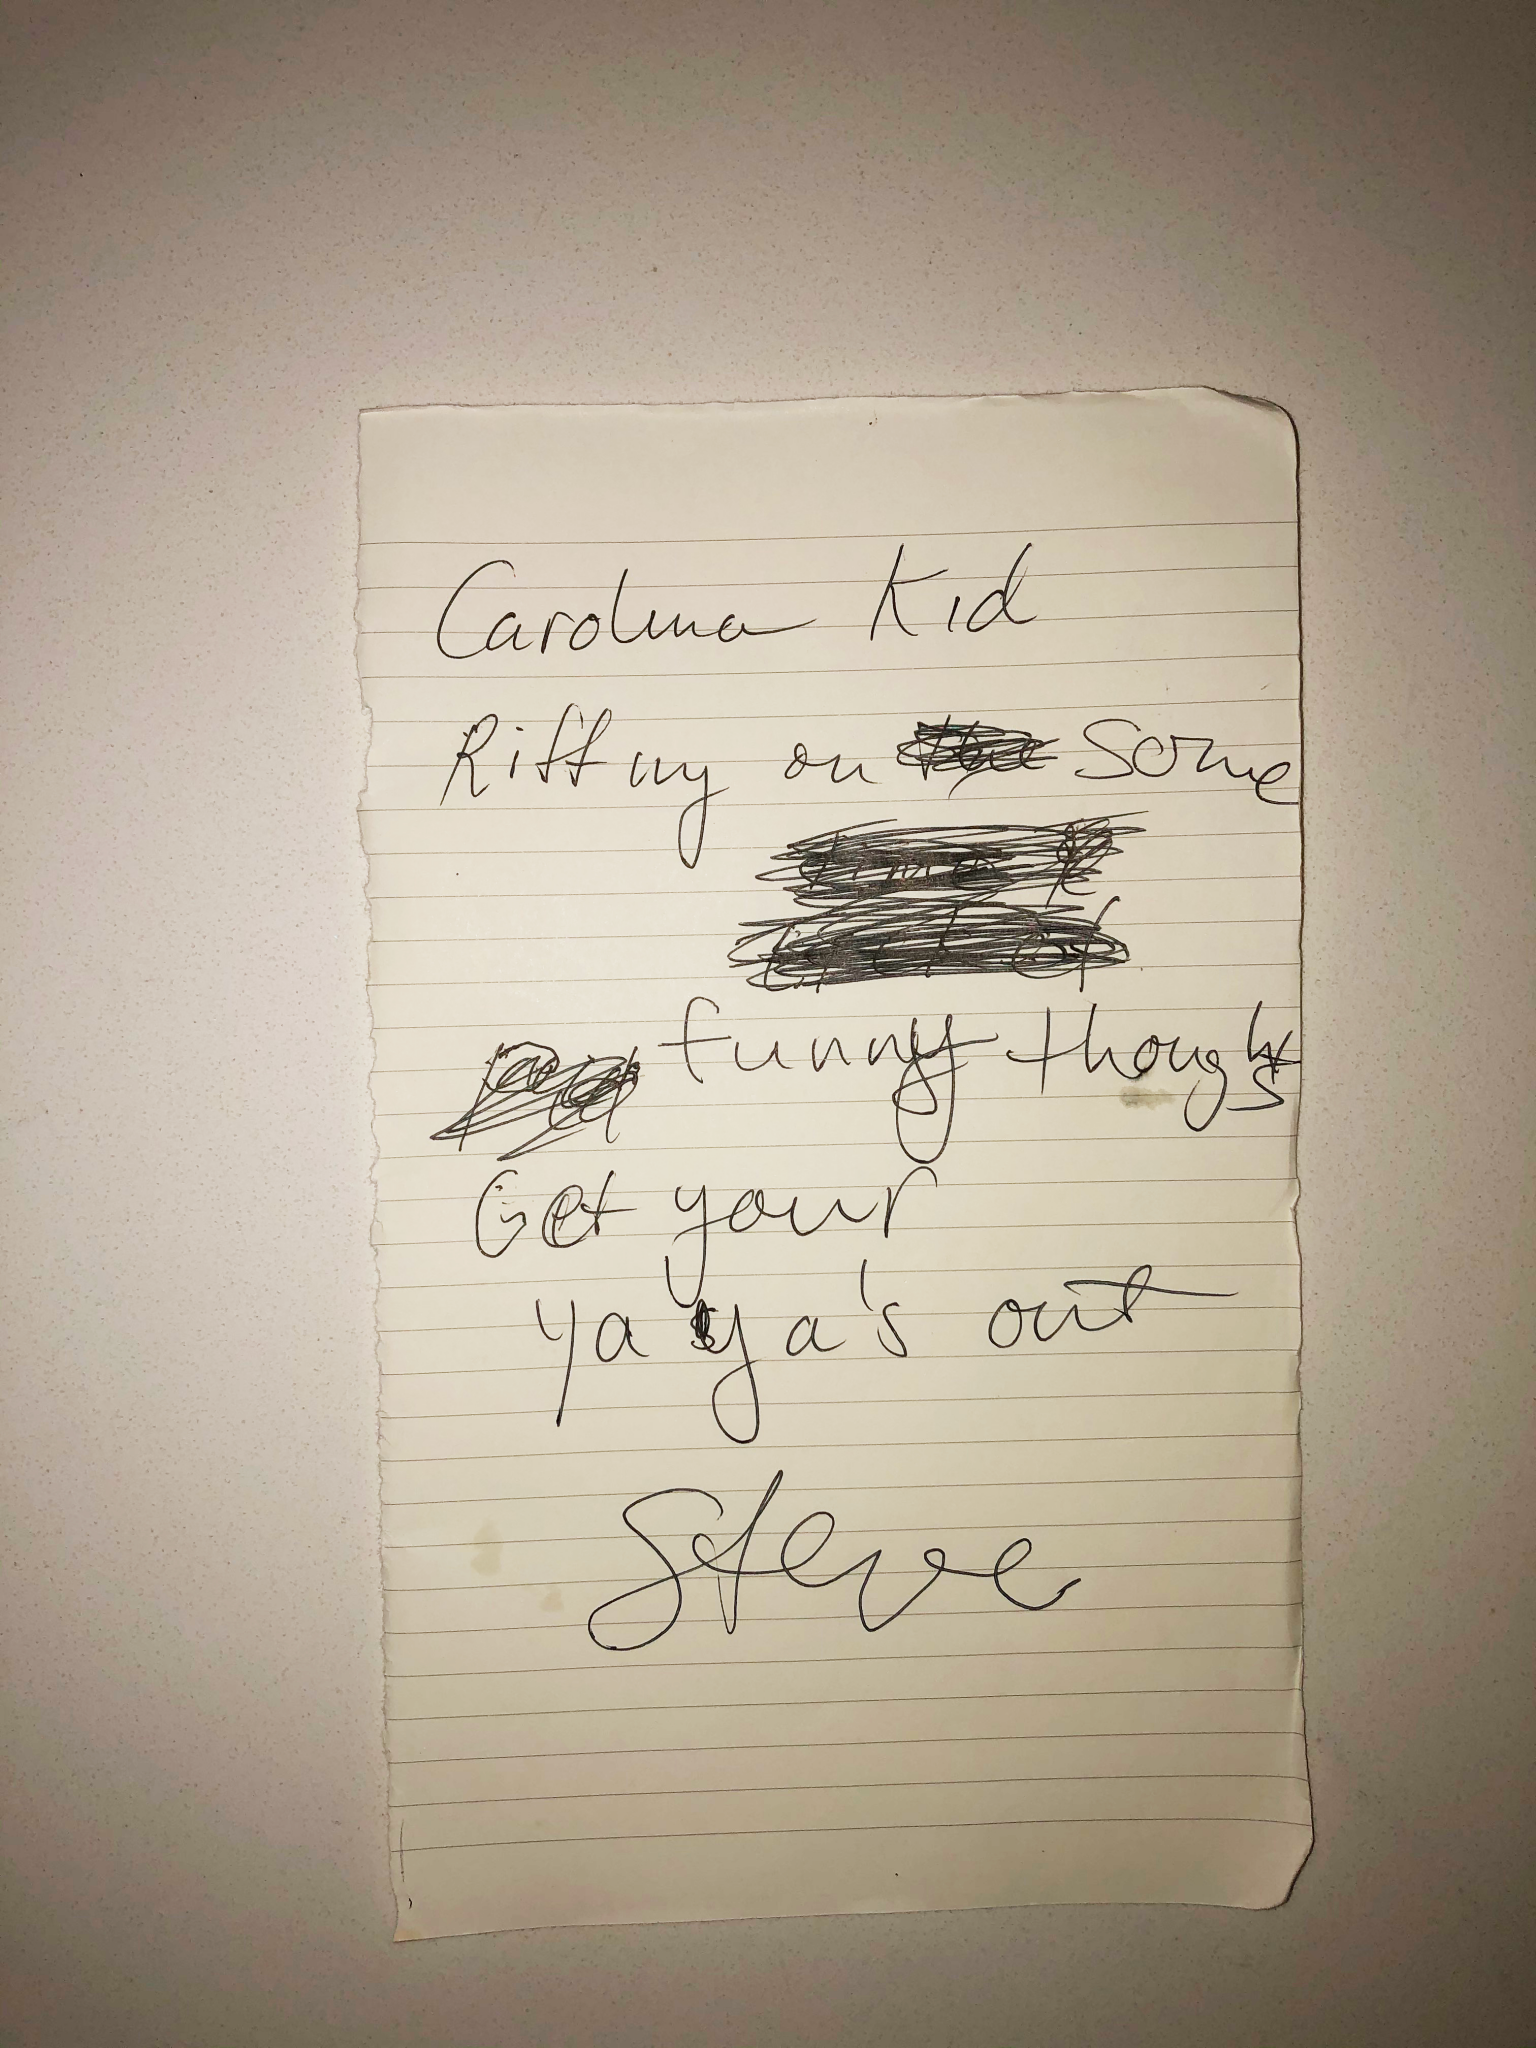 Carolina Kid
Riffing on some
funny thoughts
Get your
ya ya's out
Steve